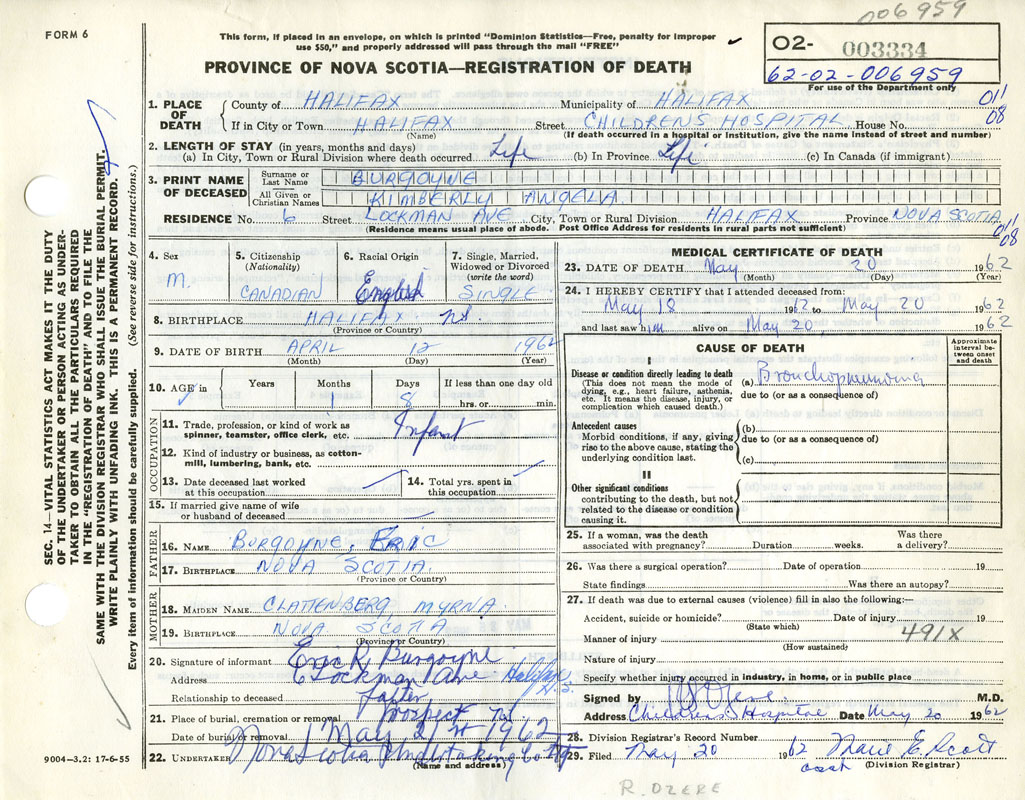 006959
FORM 6
This form, if placed in an envelope, on which is printed "Dominion Statistics—Free, penalty for improper
use $50," and properly addressed will pass through the mail "FREE"
PROVINCE OF NOVA SCOTIA—REGISTRATION OF DEATH
O2- 003334
62-02-006959
For use of the Department only
011
08
SEC. 14—VITAL STATISTICS ACT MAKES IT THE DUTY
OF THE UNDERTAKER OR PERSON ACTING AS UNDER-
TAKER TO OBTAIN ALL THE PARTICULARS REQUIRED
IN THE "REGISTRATION OF DEATH" AND TO FILE THE
SAME WITH THE DIVISION REGISTRAR WHO SHALL ISSUE THE BURIAL PERMIT.
WRITE PLAINLY WITH UNFADING INK. THIS IS A PERMANENT RECORD.
Every item of information should be carefully supplied. (See reverse side for instructions.)
1. PLACE OF DEATH
County of HALIFAX Municipality of HALIFAX
If in City or Town HALIFAX Street CHILDRENS HOSPITAL House No.
(Name) (If death occurred in a hospital or institution, give the name instead of street and number)
2. LENGTH OF STAY (in years, months and days)
(a) In City, Town or Rural Division where death occurred Life (b) In Province Life (c) In Canada (if immigrant)
3. PRINT NAME OF DECEASED
Surname or Last Name BURGOYNE
All Given or Christian Names KIMBERLY ANGELA
RESIDENCE No. 6 Street LOCKMAN AVE City, Town or Rural Division HALIFAX Province NOVA SCOTIA
(Residence means usual place of abode. Post Office Address for residents in rural parts not sufficient)
011
08
4. Sex M.
5. Citizenship (Nationality) CANADIAN
6. Racial Origin English
7. Single, Married, Widowed or Divorced (write the word) SINGLE
8. BIRTHPLACE HALIFAX NS.
(Province or Country)
9. DATE OF BIRTH APRIL 12 1962
(Month) (Day) (Year)
10. AGE in Years Months Days If less than one day old
1 8 hrs. or min.
OCCUPATION
11. Trade, profession, or kind of work as
spinner, teamster, office clerk, etc. Infant
12. Kind of industry or business, as cotton-
mill, lumbering, bank, etc.
13. Date deceased last worked
at this occupation
14. Total yrs. spent in
this occupation
15. If married give name of wife
or husband of deceased
FATHER
16. NAME BURGOYNE, ERIC
17. BIRTHPLACE NOVA SCOTIA
(Province or Country)
MOTHER
18. MAIDEN NAME CLATTENBERG MYRNA.
19. BIRTHPLACE NOVA SCOTIA
(Province or Country)
20. Signature of informant Eric R Burgoyne
Address 6 Lockman Ave Halifax N.S.
Relationship to deceased father
21. Place of burial, cremation or removal Prospect Rd
Date of burial or removal May 21st 1962
22. UNDERTAKER Nova Scotia Undertaking Co Ltd
(Name and address)
MEDICAL CERTIFICATE OF DEATH
23. DATE OF DEATH May 20 1962
(Month) (Day) (Year)
24. I HEREBY CERTIFY that I attended deceased from:
May 18 1962 to May 20 1962
and last saw him alive on May 20 1962
CAUSE OF DEATH
Approximate interval between onset and death
I
Disease or condition directly leading to death
(This does not mean the mode of
dying, e.g., heart failure, asthenia,
etc. It means the disease, injury, or
complication which caused death.)
(a) Bronchopneumonia
due to (or as a consequence of)
Antecedent causes
Morbid conditions, if any, giving
rise to the above cause, stating the
underlying condition last.
(b)
due to (or as a consequence of)
(c)
II
Other significant conditions
contributing to the death, but not
related to the disease or condition
causing it.
25. If a woman, was the death Was there
associated with pregnancy? Duration weeks. a delivery?
26. Was there a surgical operation? Date of operation 19
State findings Was there an autopsy?
27. If death was due to external causes (violence) fill in also the following:—
Accident, suicide or homicide? Date of injury 19
(State which)
Manner of injury 491X
(How sustained)
Nature of injury
Specify whether injury occurred in industry, in home, or in public place
Signed by M.D.
Address Childrens Hospital Date May 20 1962
28. Division Registrar's Record Number
29. Filed May 20 1962 Marie E. Scott
asst (Division Registrar)
9004-3.2: 17-6-55
R. OZERE